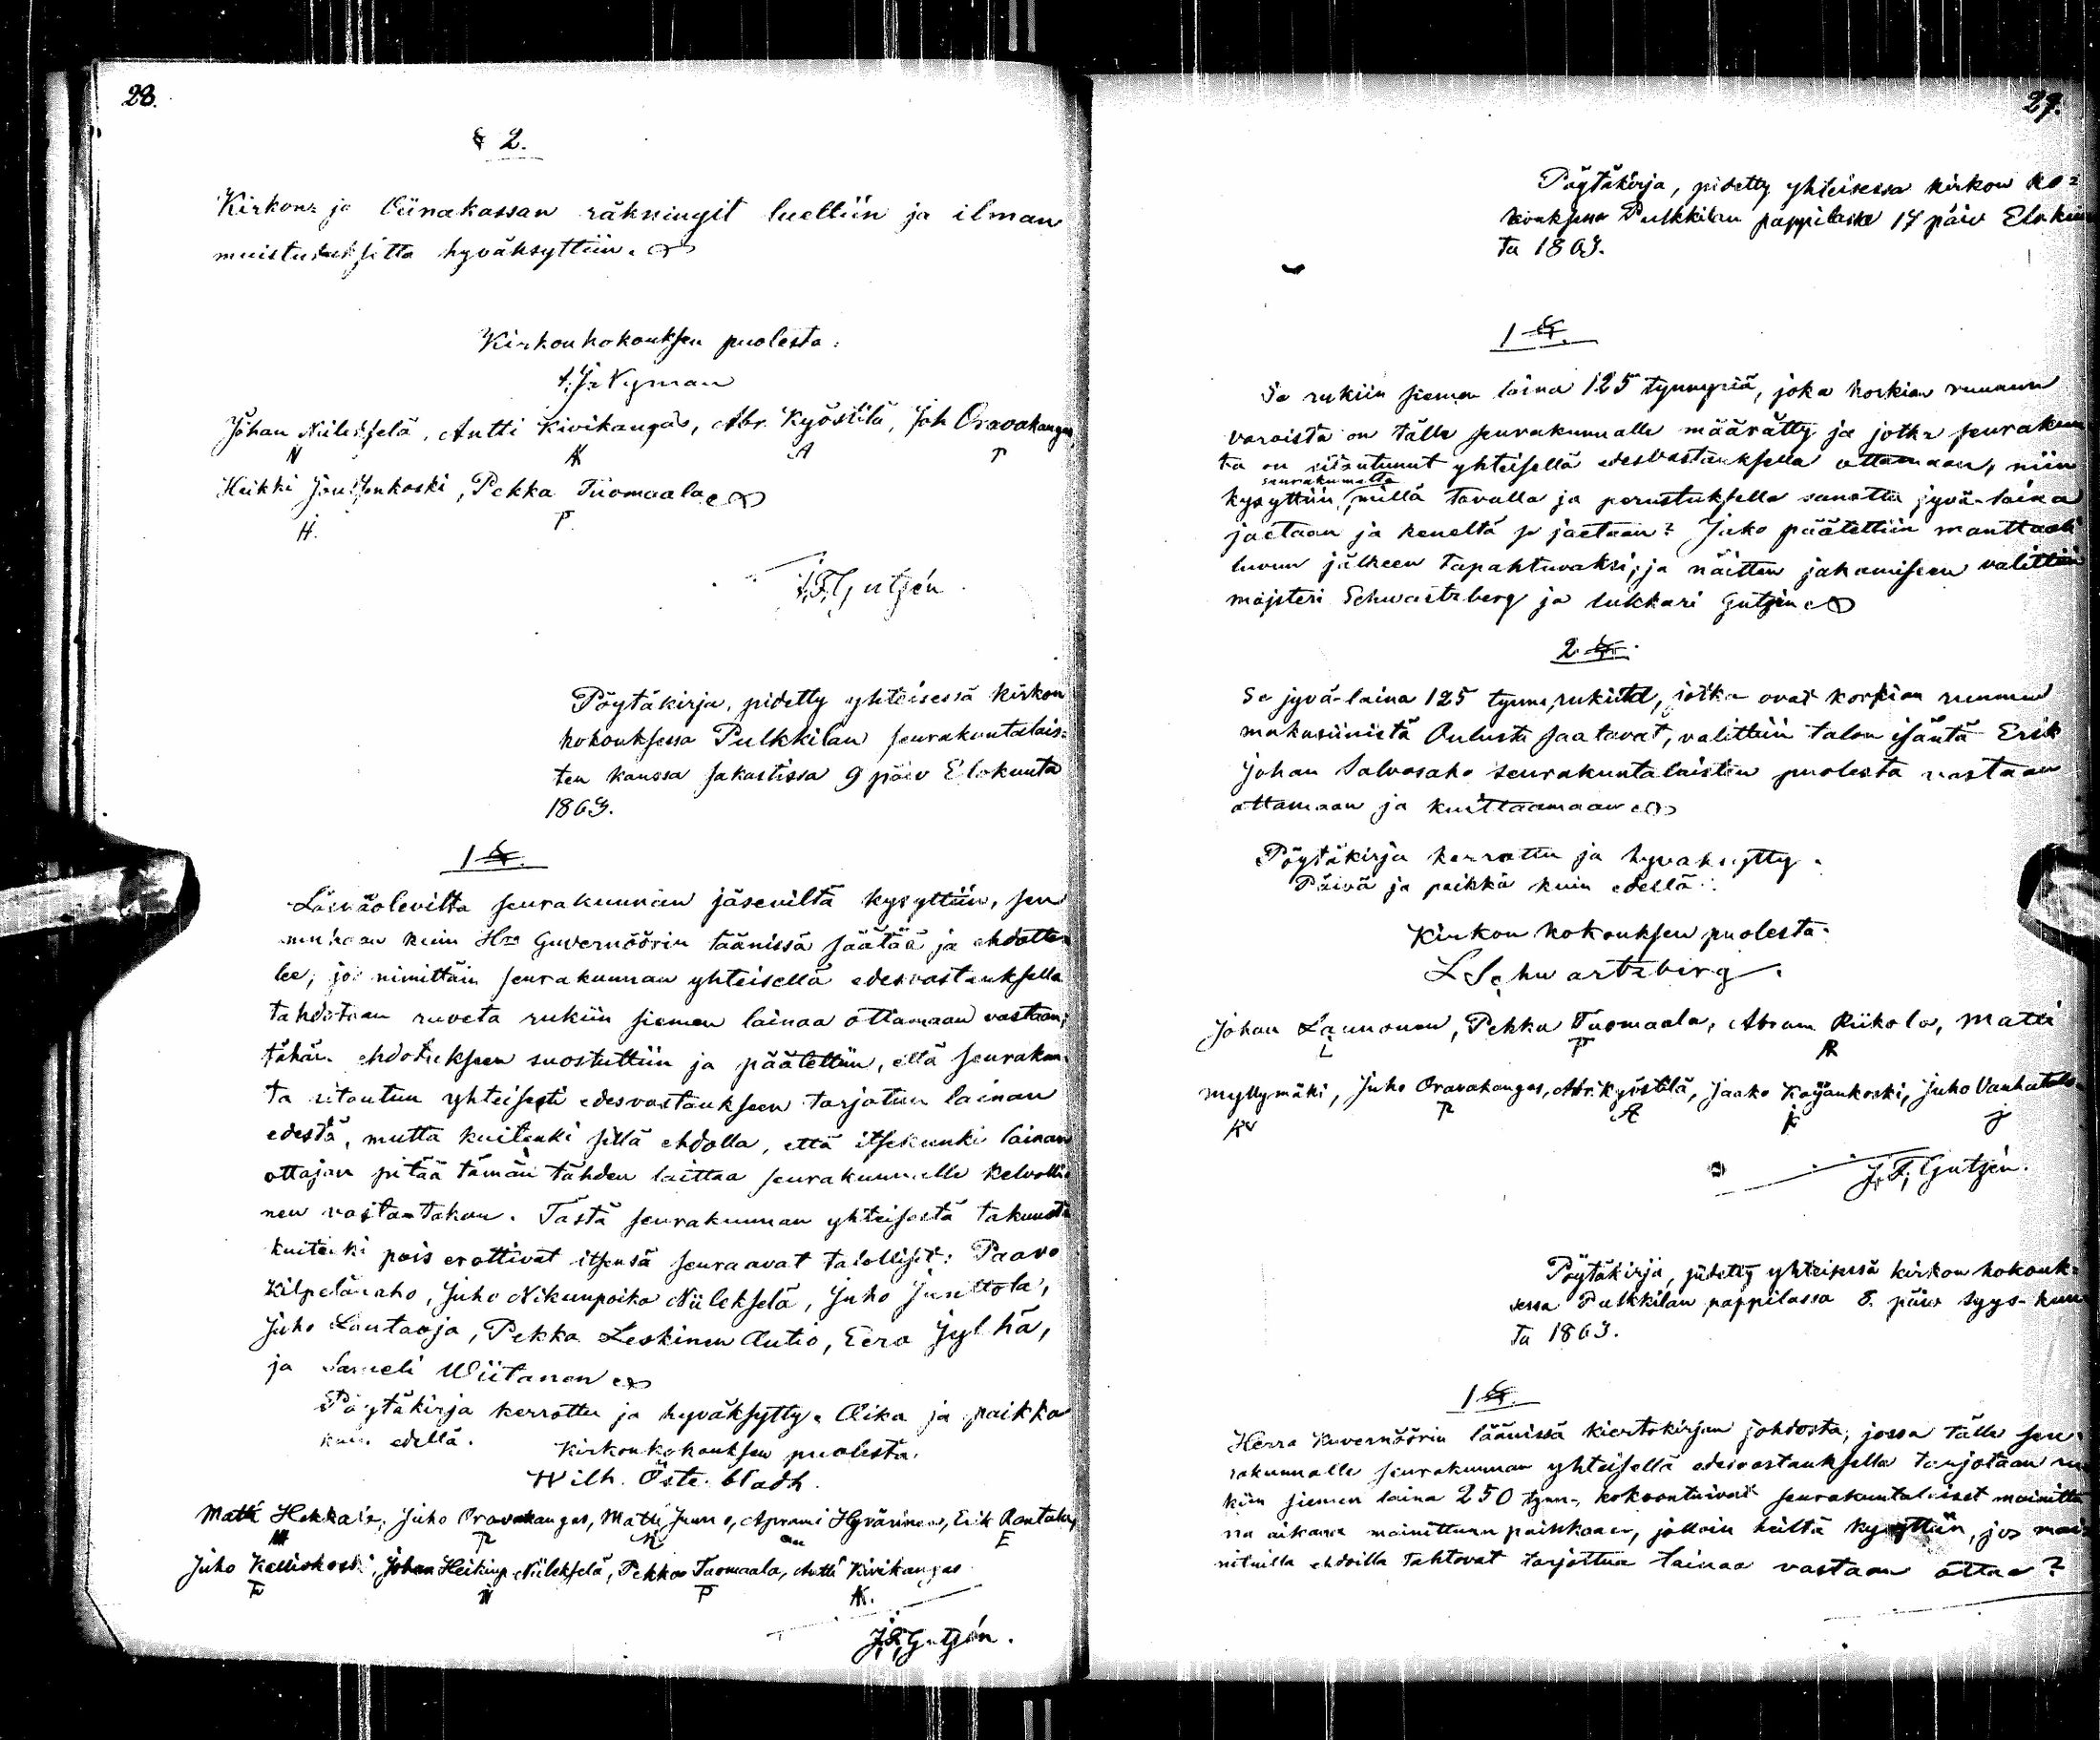 28.
§ 2.
Kirkon- ja Viinakassan räkningit luettiin ja ilman
muistutuksitta hyväksyttiin.
Kirkonkokouksen puolesta:
Nyman
Johan Niilekselä, Antti Kivikangas, Abr. Kyöstilä, Joh Oravakangas
N AK A P
Heikki Jousenkoski, Pekka Tuomaala
H. P.
J. F. Gutzén.
Pöytäkirja, pidetty yhteisessä kirkon
kokouksessa Pulkkilan seurakuntalais=
ten kanssa sakastissa 9 päiv Elokuuta
1863.
1 §.
Läsnäolevilta seurakunnan jäseniltä kysyttiin, sen
mukaan kuin Hra Guvernöörin läänissä säätää ja ehdotte=
lee, jos nimittäin seurakunnan yhteisellä edesvastauksella
tahdotaan ruveta rukiin siemen lainaa ottamaan vastaan;
tähän ehdotukseen suostuttiin ja päätettiin, että seurakun=
ta sitoutuu yhteisesti edesvastaukseen tarjotun lainan
edestä, mutta kuitenki sillä ehdolla, että itsekunki lainan
ottajan pitää tämän tähden laittaa seurakunnalle kelvolli=
nen vastaatakau. Tästä seurakunnan yhteisestä takuusta
kuitenki pois erottivat itsensä seuraavat talolliset: Paavo
Kilpelänaho, Juho Nikunpoika Niilekselä, Juho Junttola,
Juho Lautaoja, Pekka Leskinen Autio, Eero Jylhä,
ja Sameli Wiitanen
Pöytäkirja kerrottu ja hyväksytty. Aika ja paikka
kuin edellä.
Kirkonkokouksen puolesta.
Wilh. Österbladh.
Matti Hekkala, Juho Oravakangas, Matti Junno, Aprami Hyvärinen, Erik Rantala,
E
Juho Kalliokoski, Johan Heikinp Niilekselä, Pekka Tuomaala, Antti Kivikangas
P AK.
J. F. Gutzén.
29.
Pöytäkirja, pidetty yhteisessä kirkon ko=
kouksessa Pulkkilan pappilassa 17 päiv Elokuu
ta 1863.
1 §.
Se rukiin siemen laina 125 tynnyriä, joka korkian ruunun
varoista on tälle seurakunnalle määrätty ja jotka seurakun
ta on sitoutunut yhteisellä edesvastauksella ottamaan, niin
seurakunnalta
kysyttiin, millä tavalla ja perustuksella sanottu jyvä-laina
jaetaan ja keneltä se jaetaan? Juko päätettiin manttaali
luvun jälkeen tapahtuvaksi; ja näitten jakamiseen valittiin
majsteri Schwartzberg ja lukkari Gutzén
2 §.
Se jyvä-laina 125 tynn, rukiita, jotka ovat korkian ruunun
makasiinista Oulusta saatavat, valittiin talon isäntä Erik
Johan Salvosaho seurakuntalaisten puolesta vastaan
ottamaan ja kuittaamaan
Pöytäkirja kerrottu ja hyväksytty.
Päivä ja paikka kuin edellä.
Kirkon kokouksen puolesta.
L Schwartzberg.
Johan Launonen, Pekka Tuomaala, Abram Riikola, Matti
L P AR
Myllymäki, Juho Oravakangas, Abr. Kyöstilä, Jaako Kärjänkoski, Juho Vanhatalo
P A J
J. F. Gutzén.
Pöytäkirja, pidetty yhteisessä kirkon kokouk=
sessa Pulkkilan pappilassa 8. päiv Syys-kuu
ta 1863.
1 §.
Herra Kuvernöörin läänissä kiertokirjan johdosta, jossa tälle seu
rakunnalle seurakunnan yhteisellä edesvastauksella tarjotaan ru
kiin siemen laina 250 tynn., kokoontuivat seurakuntalaiset mainittu
na aikana mainittuun paikkaan, jolloin heiltä kysyttiin, jos mai
nituilla ehdoilla tahtovat tarjottua lainaa vastaan ottaa?